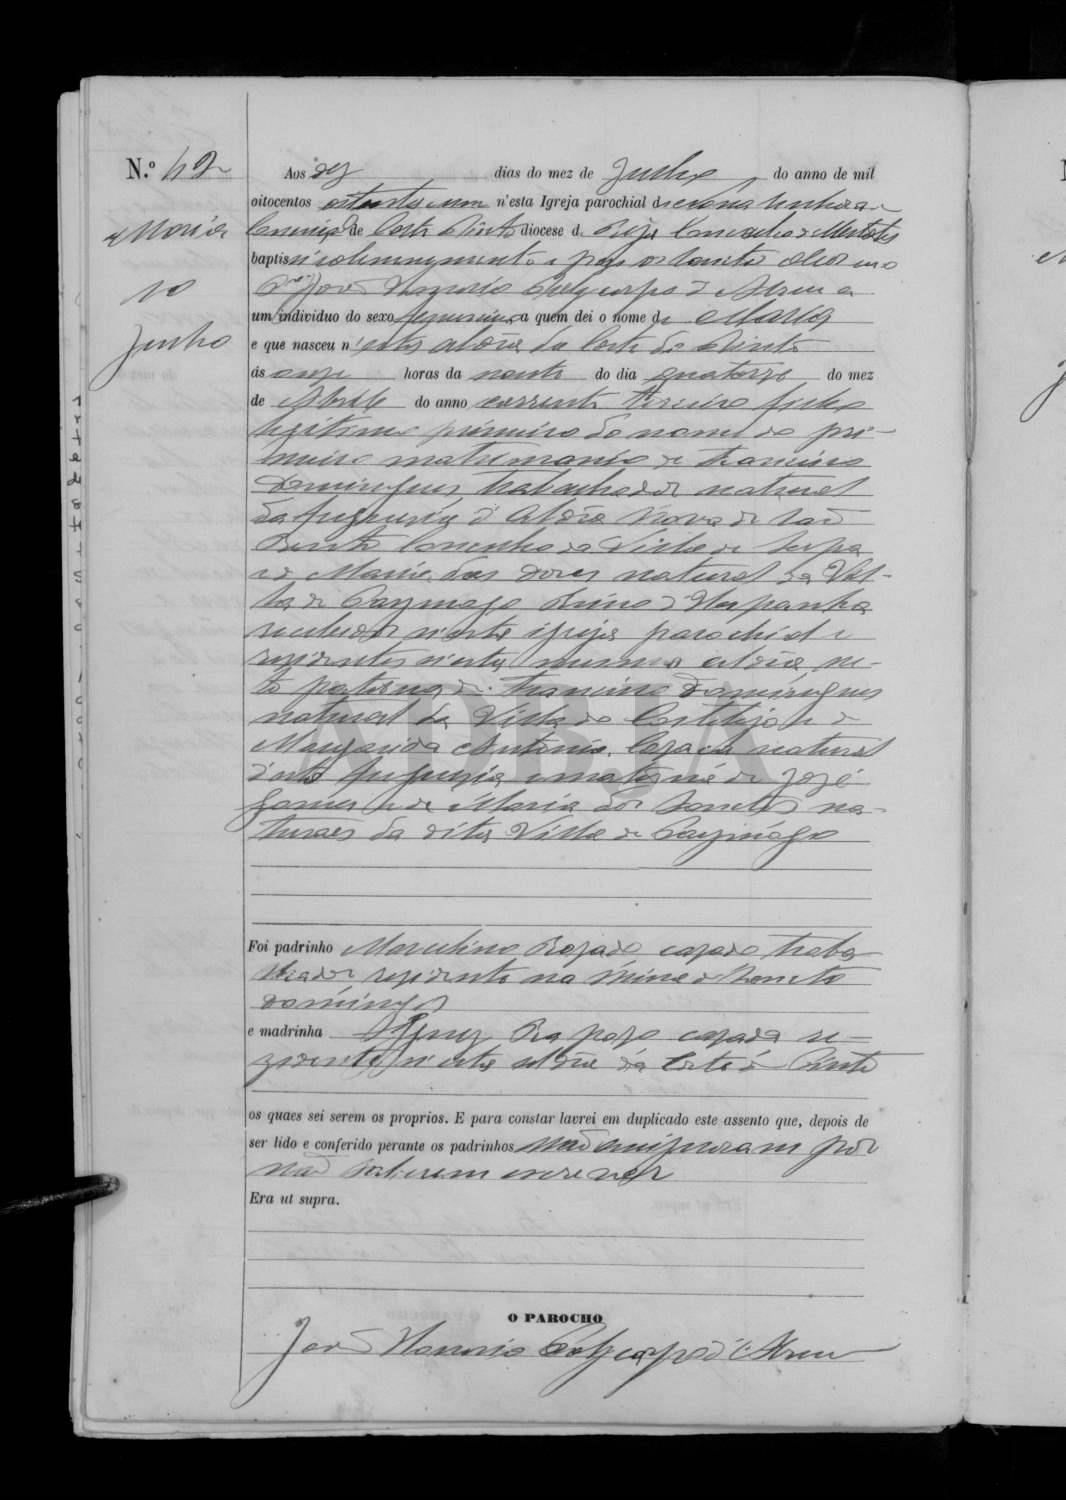 N.º 42
Maria
10
Junho
Aos dez dias do mez de Junho do anno de mil
oitocentos oitenta e um n'esta Igreja parochial de nossa Senhora da
Conceição de Corte do Pinto diocese de Beja Concelho de Mertola
baptisei solemnemente e puz os Santos Oleos eu o
João Honorio Polycarpo d'Abreu a
um individuo do sexo femenino a quem dei o nome de Maria
e que nasceu n'esta aldêa da Corte do Pinto
ás onze horas da noute do dia quatorze do mez
de Abril do anno corrente terceira filha
legitima primeira do nome do pri-
meiro matrimonio de Francisco
Domingues, trabalhador natural
da freguezia d'aldêa Nova de São
Bento Concelho da Villa de Serpa
e de Maria das Dores natural da Vil-
la de Paymogo Reino d'Hespanha
recebidos n'esta igreja parochial e
rezidentes n'esta mesma aldêa, ne-
ta paterna de Francisco Domingues
natural da Villa do Castillejo e de
Margarida Antonia, Cazada natural
d'esta freguezia e materna de José
Gomes e de Maria dos Santos na-
turaes da dita Villa de Paymogo
ADBJA
Foi padrinho Marcelino Rozado cazado traba-
lhador rezidente na Mina de Santo
domingos
e madrinha Rapozo cazada re-
zidente n'esta aldêa da Corte do Pinto
os quaes sei serem os proprios. E para constar lavrei em duplicado este assento que, depois de
ser lido e conferido perante os padrinhos não assignaram por
não saberem escrever
Era ut supra.
O PAROCHO
João Honorio Polycarpo d'Abreu